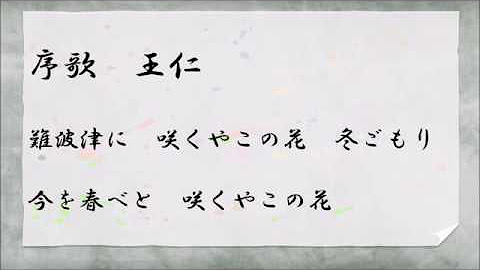 序歌　王仁
難波津に　咲くやこの花　冬ごもり
今を春べと　咲くやこの花